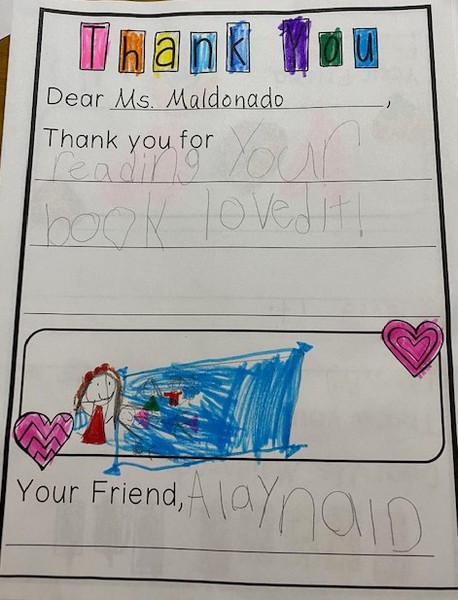 Thank You
Dear Ms. Maldonado,
Thank you for Your
reading
book lovedit!
Your Friend, Alaynalo